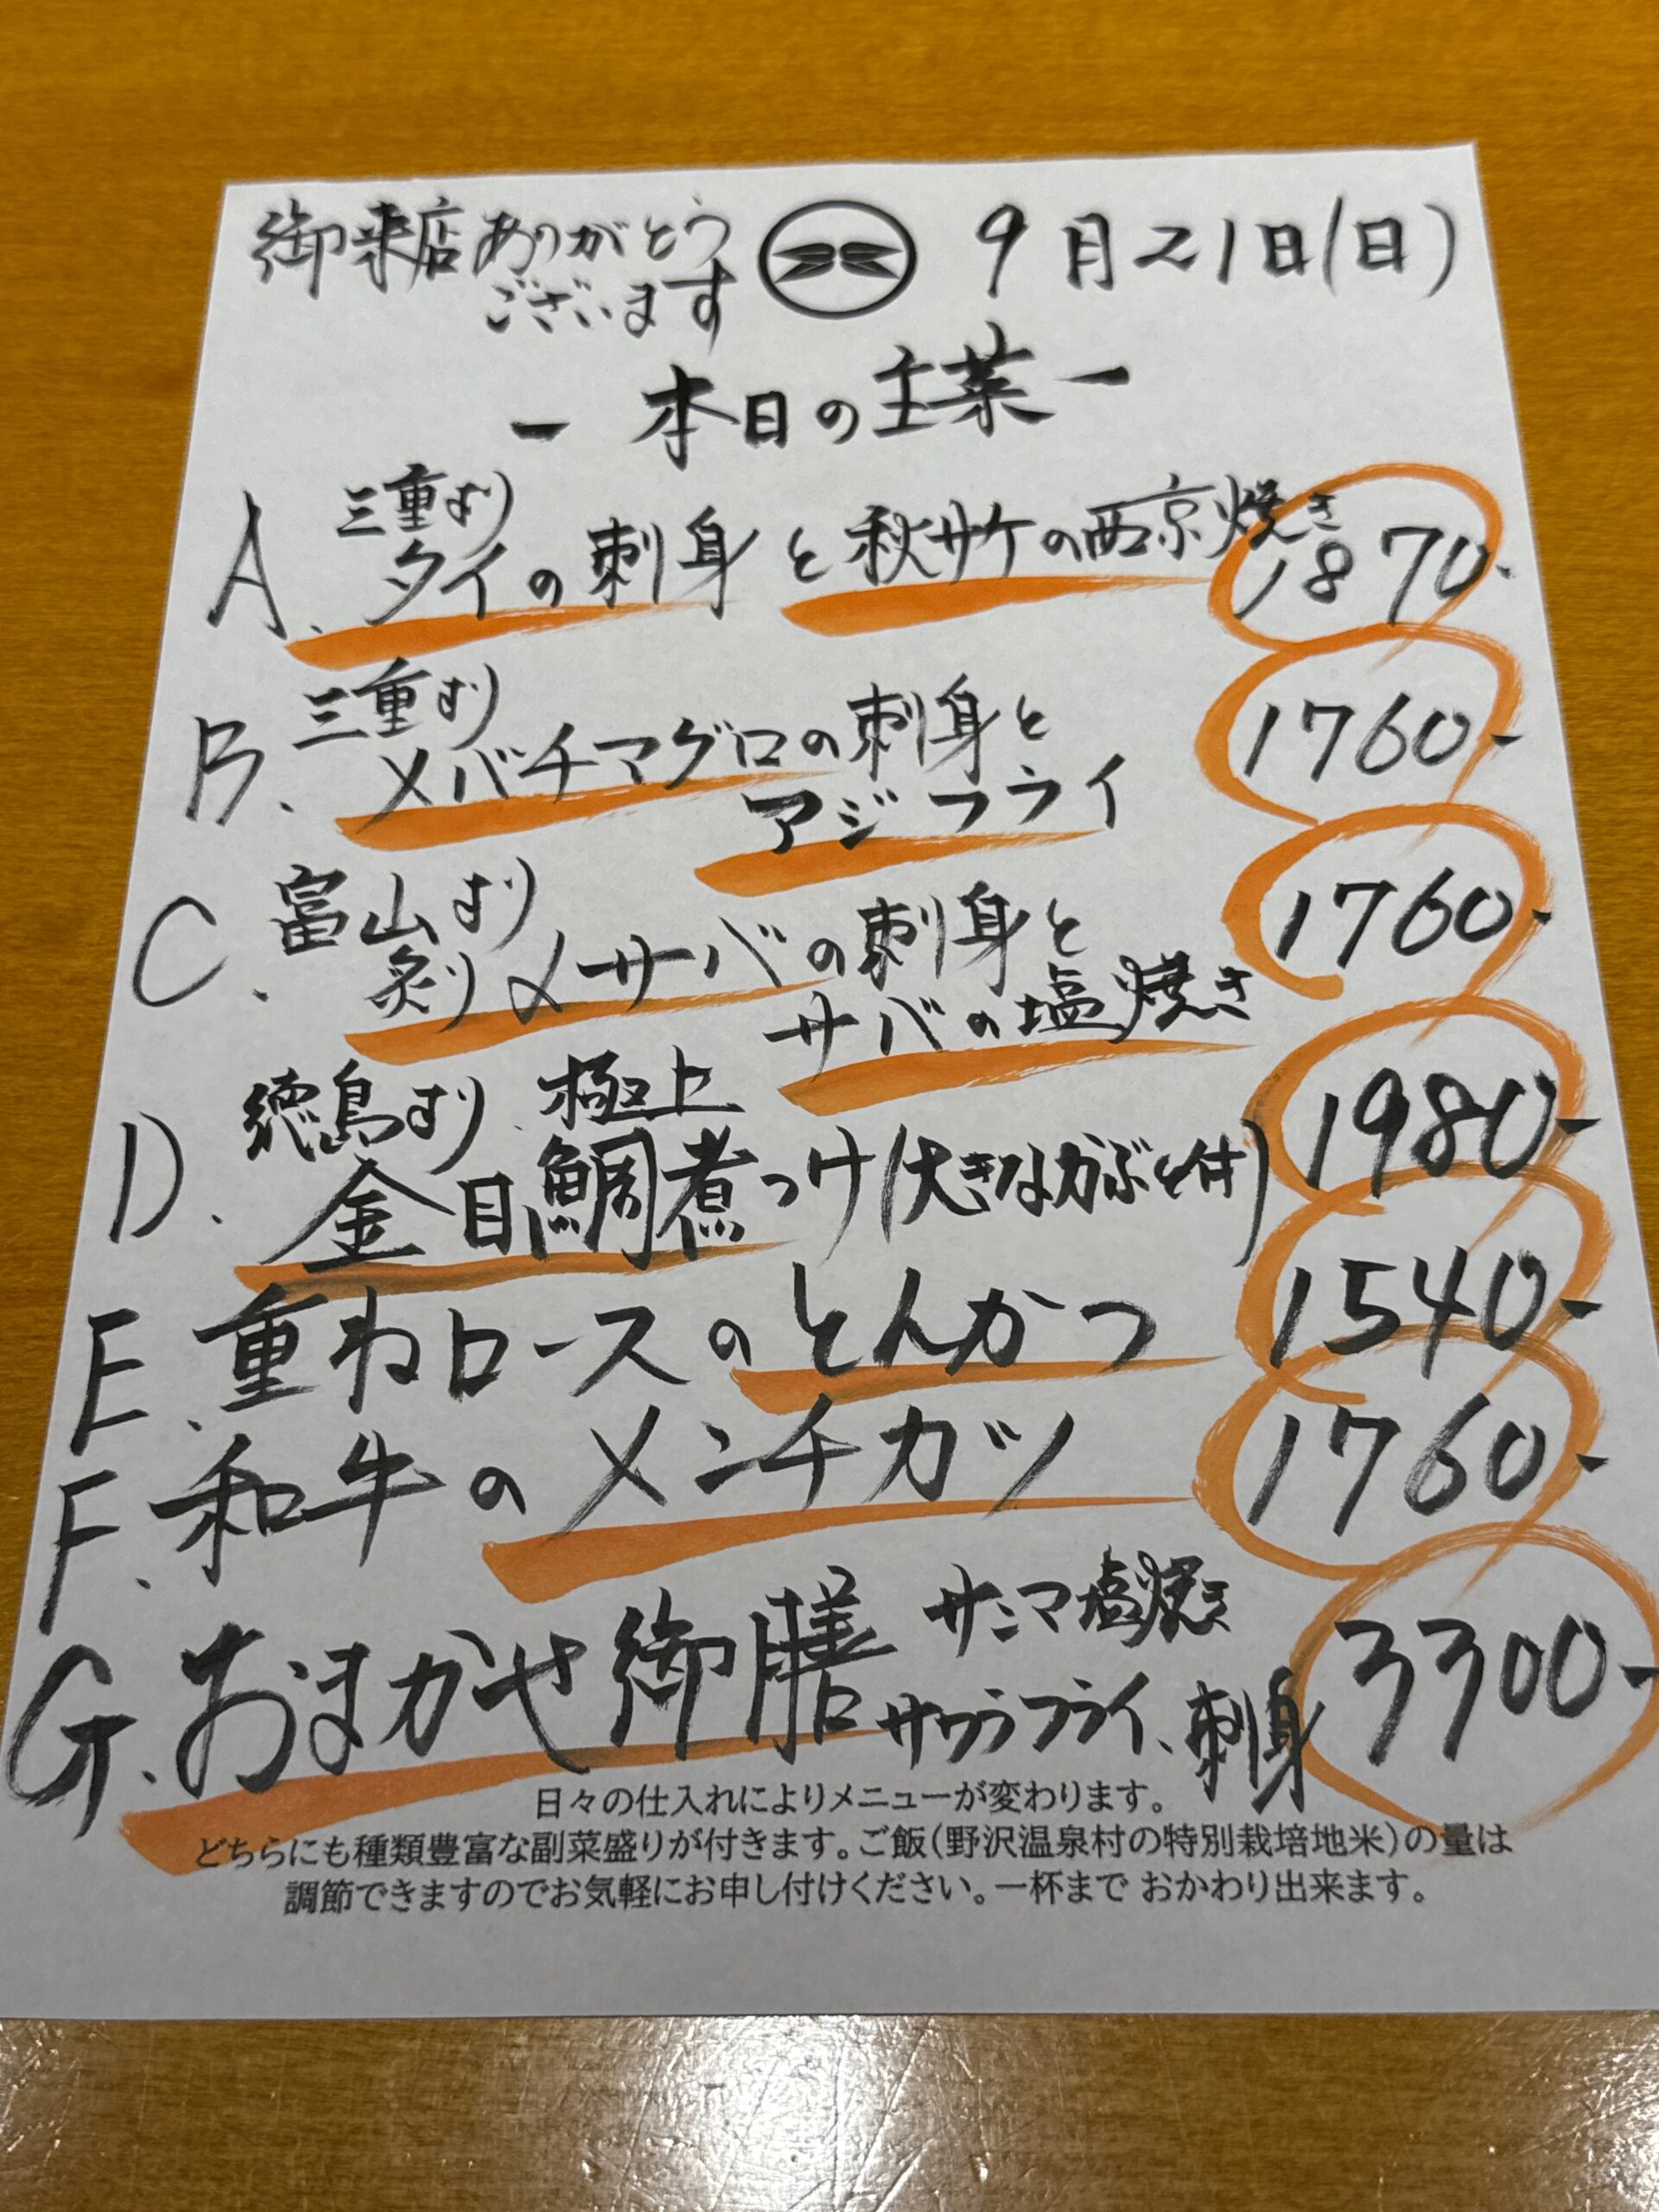 御来店ありがとう
ございます
9月21日(日)
- 本日の主菜 -
三重より
A. タイの刺身と秋サケの西京焼き 1870-
三重より
B. メバチマグロの刺身と 1760-
アジフライ
富山より
C. 炙り〆サバの刺身と 1760-
サバの塩焼き
徳島より 極上
D. 金目鯛煮つけ(大きなかぶと付) 1980-
E. 重ねロースのとんかつ 1540-
F. 和牛のメンチカツ 1760-
サンマ塩焼き
G. おまかせ御膳 サワラフライ、刺身 3300-
日々の仕入れによりメニューが変わります。
どちらにも種類豊富な副菜盛りが付きます。ご飯(野沢温泉村の特別栽培地米)の量は
調節できますのでお気軽にお申し付けください。一杯まで おかわり出来ます。